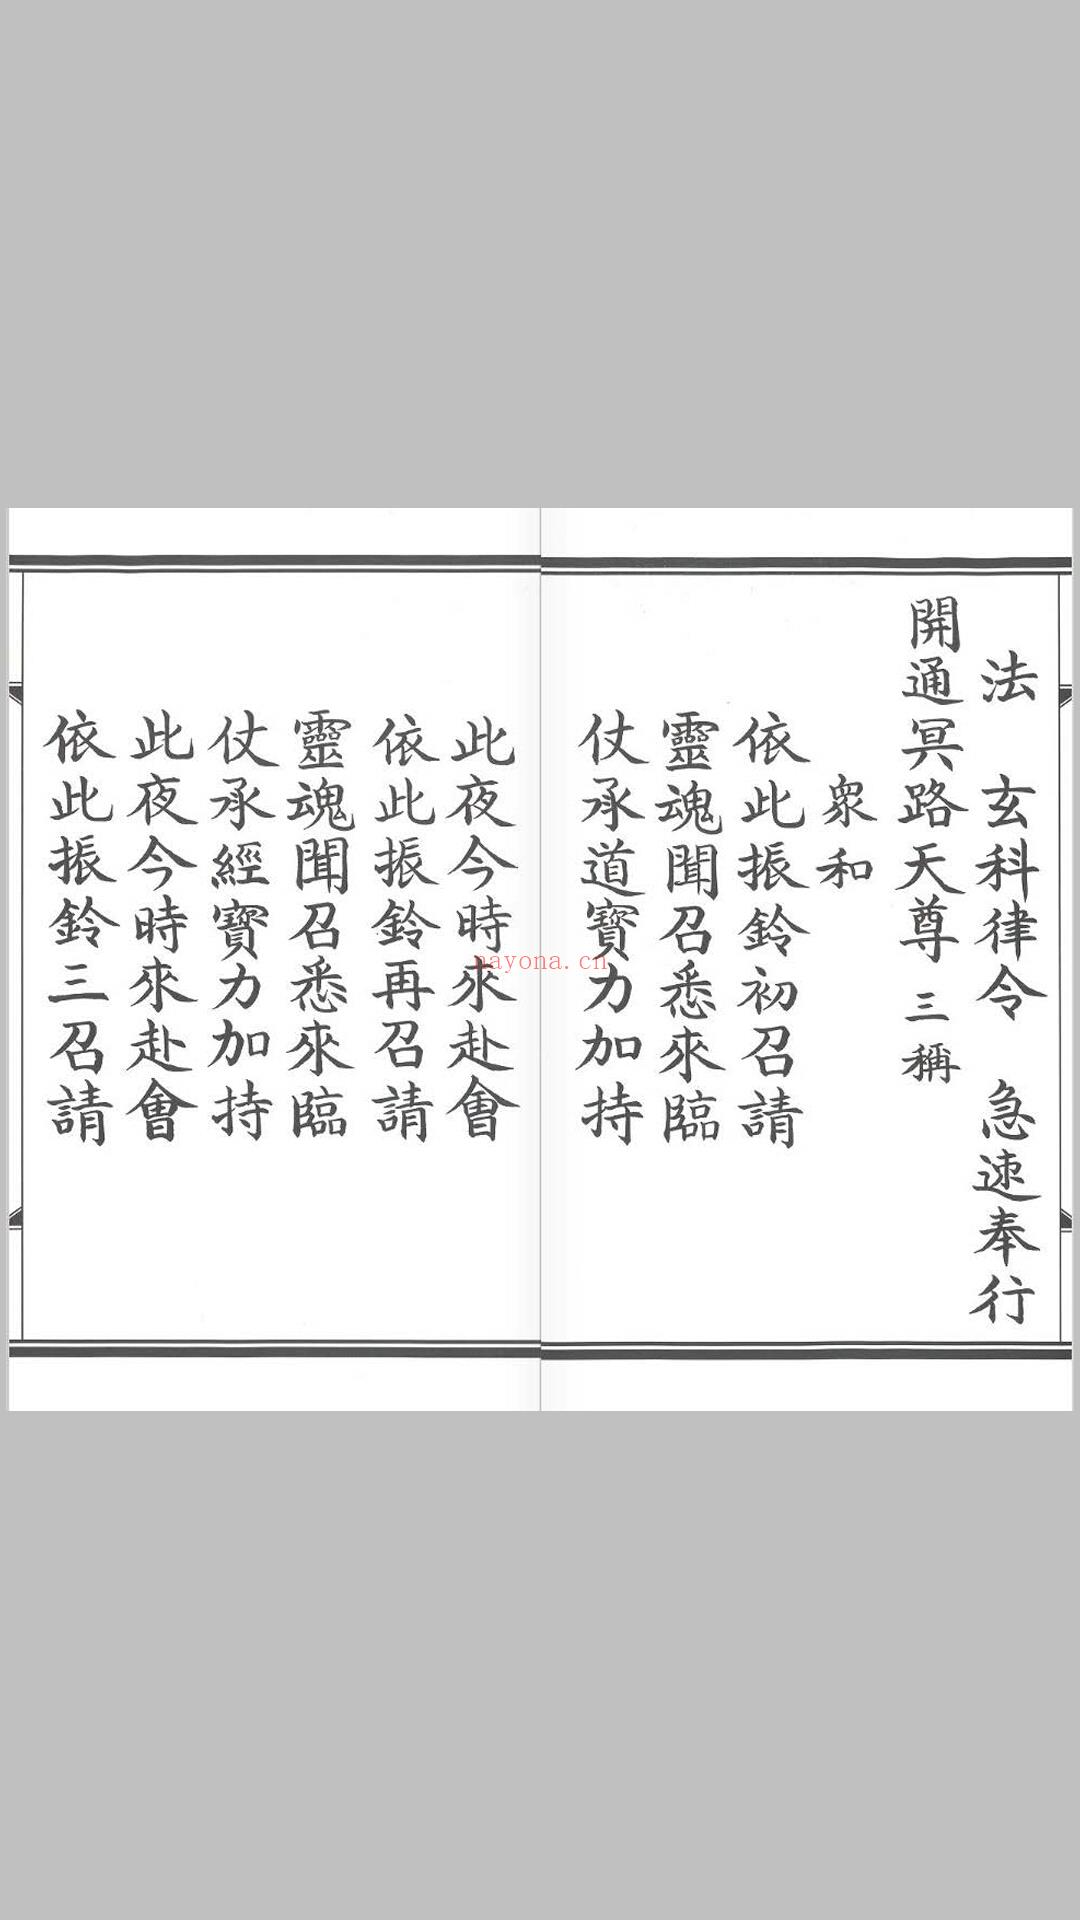 法　玄科律令　急速奉行
開通冥路天尊 三稱
衆和
依此振鈴初召請
靈魂聞召悉來臨
仗承道寶力加持
此夜今時來赴會
依此振鈴再召請
靈魂聞召悉來臨
仗承經寶力加持
此夜今時來赴會
依此振鈴三召請
nayona.cn